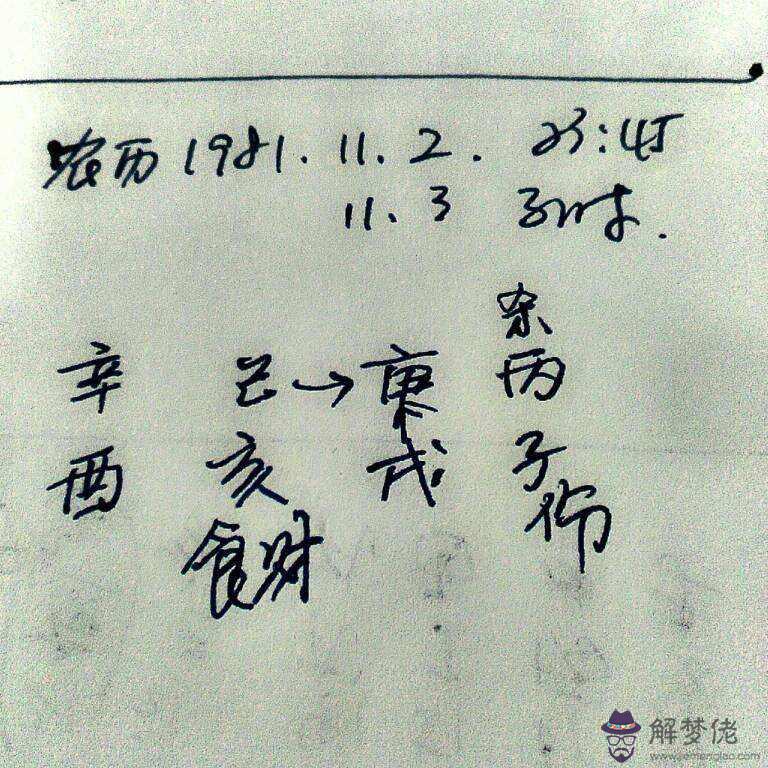 农历 1981. 11. 2. 23:45
11. 3 子时.
杀
辛 己→庚 丙
酉 亥 戌 子
食财 伤
解梦佬
www.jiemenglao.com